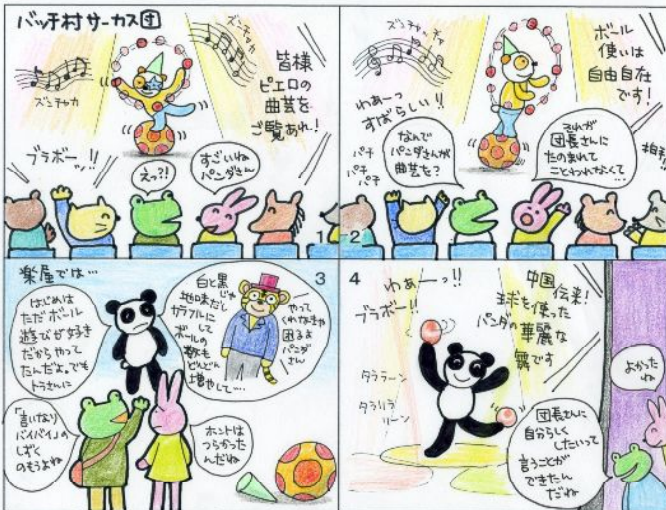 バッチ村サーカス団
ズンチャカ
ズンチャカ
皆様
ピエロの
曲芸を
ご覧あれ!
ブラボーッ!!
えっ?!
すごいね
パンダさん
1
ズンチャッチャ
ボール
使いは
自由自在
です!
わぁーっ
すばらしい!!
パチ
パチ
パチ
なんで
パンダさんが
曲芸を?
それが
団長さんに
たのまれて
ことわれなくて…
2
楽屋では…
はじめは
ただボール
遊びが好き
だからやって
たんだよ。でも
トラさんに
白と黒じゃ
地味だし
カラフルに
して
ボールの
数も
どんどん
増やして…
やって
くれなきゃ
困るよ
パンダ
さん
3
「言いなり
バイバイ」の
しずく
のもうよ
ホントは
つらかった
んだね
4
わぁーっ!!
ブラボー!!
中国
伝来!
球を使った
パンダの華麗な
舞です
タララーン
タラリラ
リーン
よかった
ね
団長さんに
自分らしく
したいって
言うことが
できたん
だね